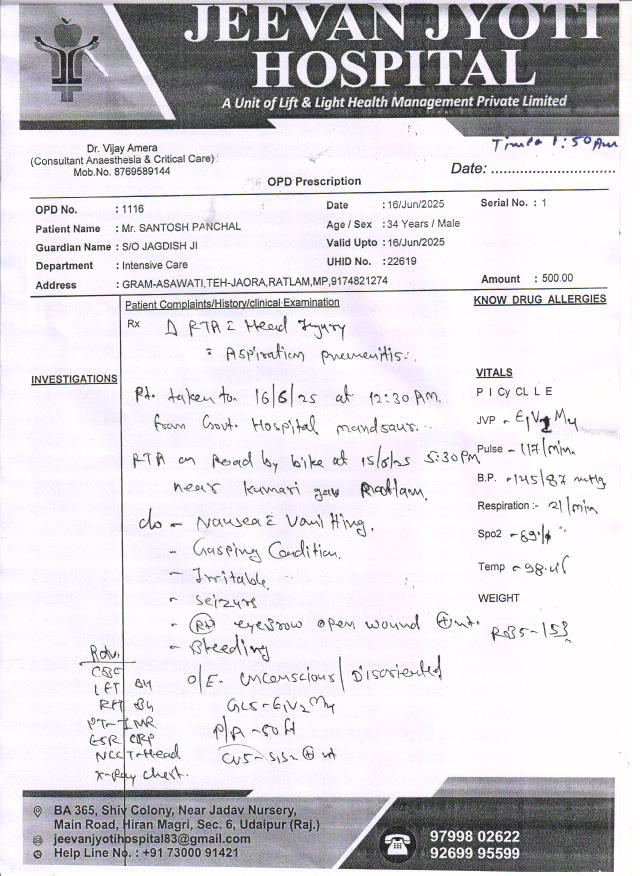 JEEVAN JYOTI
HOSPITAL
A Unit of Lift & Light Health Management Private Limited
Dr. Vijay Amera
(Consultant Anaesthesia & Critical Care)
Mob.No. 8769589144
Time 1:50 Am
Date: ................................
OPD Prescription
OPD No. : 1116
Date : 16/Jun/2025
Serial No. : 1
Patient Name : Mr. SANTOSH PANCHAL
Age / Sex : 34 Years / Male
Guardian Name : S/O JAGDISH JI
Valid Upto : 16/Jun/2025
Department : Intensive Care
UHID No. : 22619
Address : GRAM-ASAWATI,TEH-JAORA,RATLAM,MP,9174821274
Amount : 500.00
Patient Complaints/History/clinical Examination
KNOW DRUG ALLERGIES
Rx
Δ RTA c Head Injury
: Aspiration pneumonitis..
INVESTIGATIONS
Pt. taken to 16/6/25 at 12:30 AM.
from Govt. Hospital mandsaur..
RTA on Road by bike at 15/6/25 5:30 PM
near kumari gaw Ratlam.
c/o - Nausea c Vomitting.
- Gasping Condition.
- Irritable
- Seizurs
- (Rt) eyebrow open wound ⊕nt.
- Bleeding
O/E- Unconscious / Disoriented
GCS- E1V2M4
P/A - soft
CVS- S1S2 ⊕nt
VITALS
P I Cy CL L E
JVP - E1V2M4
Pulse - 117/min.
B.P. - 145/87 mmHg
Respiration:- 21/min
Spo2 - 89%
Temp - 98.
WEIGHT
RBS- 153
Adv.
CBC
LFT
RFT
PT-INR
ESR CRP
NCCT-Head
X-Ray Chest.
BA 365, Shiv Colony, Near Jadav Nursery,
Main Road, Hiran Magri, Sec. 6, Udaipur (Raj.)
jeevanjyotihospital83@gmail.com
Help Line No. : +91 73000 91421
97998 02622
92699 95599